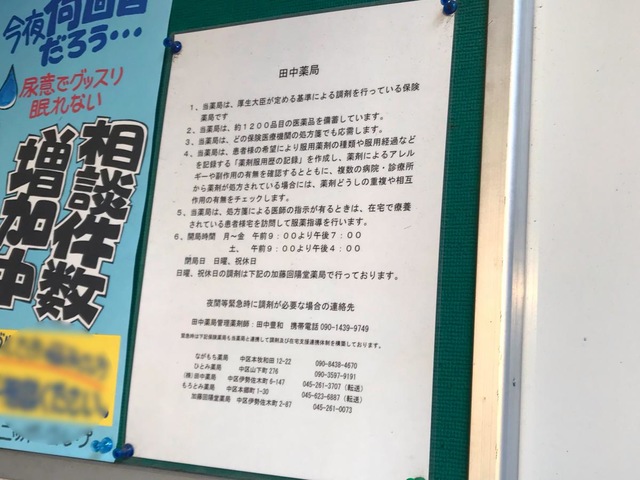 今夜何回目
だろう…
尿意でグッスリ
眠れない
相談件数
増加中
田中薬局
1、当薬局は、厚生大臣が定める基準による調剤を行っている保険
薬局です
2、当薬局は、約1200品目の医薬品を備蓄しています。
3、当薬局は、どの保険医療機関の処方箋でも応需します。
4、当薬局は、患者様の希望により服用薬剤の種類や服用経過など
を記録する「薬剤服用歴の記録」を作成し、薬剤によるアレル
ギーや副作用の有無を確認するとともに、複数の病院・診療所
から薬剤が処方されている場合には、薬剤どうしの重複や相互
作用の有無をチェックします。
5、当薬局は、処方箋による医師の指示が有るときは、在宅で療養
されている患者様宅を訪問して服薬指導を行います。
6、開局時間 月～金 午前9:00より午後7:00
土、 午前9:00より午後4:00
閉局日 日曜、祝休日
日曜、祝休日の調剤は下記の加藤回陽堂薬局で行っております。
夜間等緊急時に調剤が必要な場合の連絡先
田中薬局管理薬剤師:田中豊和 携帯電話 090-1439-9749
緊急時は下記保険薬局も当薬局と連携して調剤及び在宅支援連携体制を構築しております。
ながもち薬局 中区本牧和田 12-22 090-8438-4670
ひとみ薬局 中区山下町 276 090-3597-9191
(株)田中薬局 中区伊勢佐木町 6-147 045-261-3707(転送)
もろとみ薬局 中区本郷町 1-30 045-623-6887(転送)
加藤回陽堂薬局 中区伊勢佐木町 2-87 045-261-0073